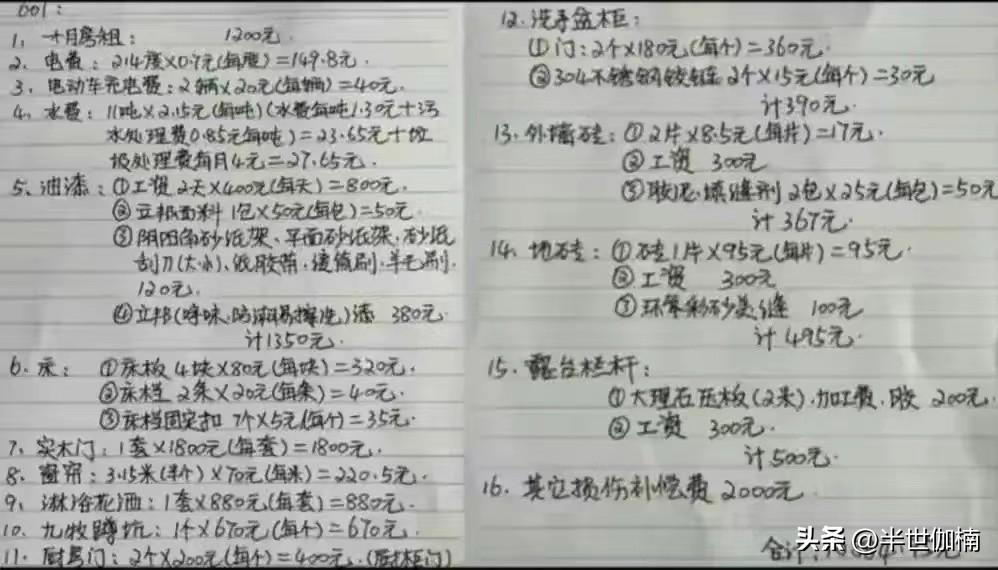 001：
1、十月房租： 1200元.
2、电费：214度×0.7元(每度)=149.8元.
3、电动车充电费：2辆×20元(每辆)=40元.
4、水费：11吨×2.15元(每吨)(水费每吨1.30元+污
水处理费0.85元每吨)=23.65元+垃
圾处理费每月4元=27.65元.
5、油漆：①工资 2天×400元(每天)=800元.
②立邦面料 1包×50元(每包)=50元.
③阴阳角砂纸架、平面砂纸架、砂纸
刮刀(大小)、纸胶带、刷、羊毛刷.
120元.
④立邦(净味、防潮易擦洗)漆 380元.
计1350元.
6、床： ①床板 4块×80元(每块)=320元.
②床档 2条×20元(每条)=40元.
③床档固定扣 7个×5元(每个)=35元.
7、实木门：1套×1800元(每套)=1800元.
8、窗帘：3.15米(半个)×70元(每米)=220.5元.
9、淋浴花洒：1套×880元(每套)=880元.
10、九牧蹲坑：1个×670元(每个)=670元.
11、厨房门：2个×200元(每个)=400元.(厨柜门)
12、洗手盆柜：
①门：2个×180元(每个)=360元
②304不锈钢铰链 2个×15元(每个)=30元
计390元.
13、外墙砖：①2片×8.5元(每片)=17元.
②工资 300元
③胶泥、填缝剂 2包×25元(每包)=50元
计367元.
14、地砖：①砖1片×95元(每片)=95元.
②工资 300元
③环氧彩砂美缝 100元
计495元.
15、露台栏杆：
①大理石压板(2米)、加工费、胶 200元.
②工资 300元.
计500元.
16、其它损伤补偿费 2000元.
合计：
头条 @半世伽楠